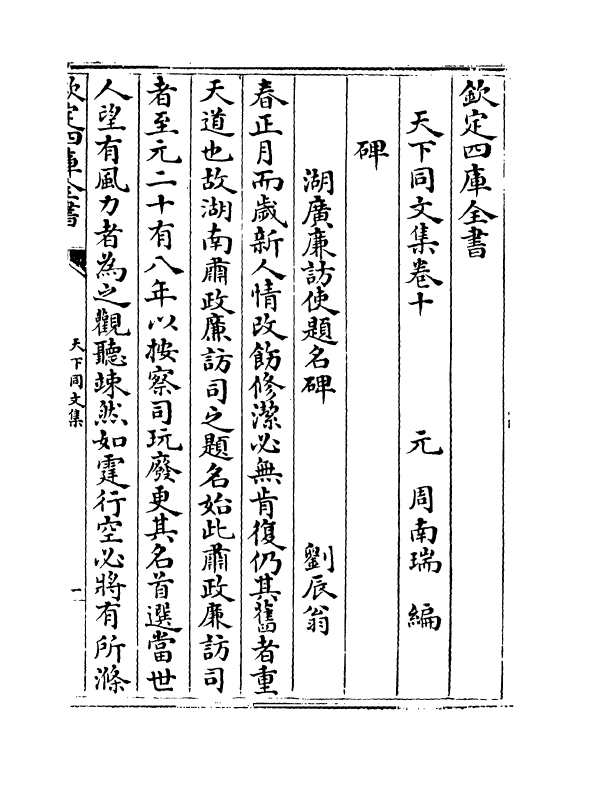 欽定四庫全書
天下同文集卷十　元　周南瑞　編
碑
湖廣廉訪使題名碑　劉辰翁
春正月而歲新人情改飭修潔必無肯復仍其舊者重
天道也故湖南肅政廉訪司之題名始此肅政廉訪司
者至元二十有八年以按察司玩廢更其名首選當世
人望有風力者為之觀聽竦然如霆行空必將有所滌
欽定四庫全書
天下同文集
一